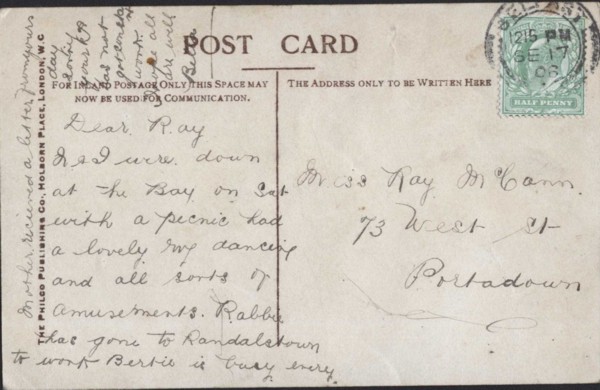 POST CARD
FOR INLAND POSTAGE ONLY THIS SPACE MAY
NOW BE USED FOR COMMUNICATION.
THE ADDRESS ONLY TO BE WRITTEN HERE
BELFAST
12 15 PM
SE 17
06
HALF PENNY
THE PHILCO PUBLISHING CO. HOLBORN PLACE, LONDON, W.C
Dear Ray
I were down
at the Bay on Sat
with a pecnic had
a lovely dancing
and all sorts of
amusements. Rabbie
has gone to Randalstown
to work Bertie is busy every
day
Mother recieved a letter from yours
sorry
has not
got
work
I hope all
are well
Miss Ray McCann
73 West St
Portadown